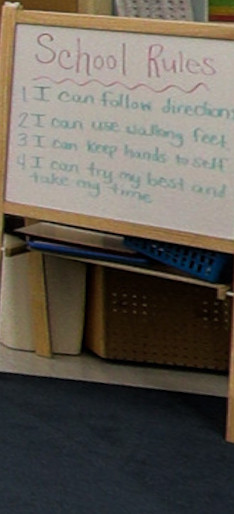 School Rules
1 I can follow directions
2 I can use walking feet
3 I can keep hands to self
4 I can try my best and
take my time